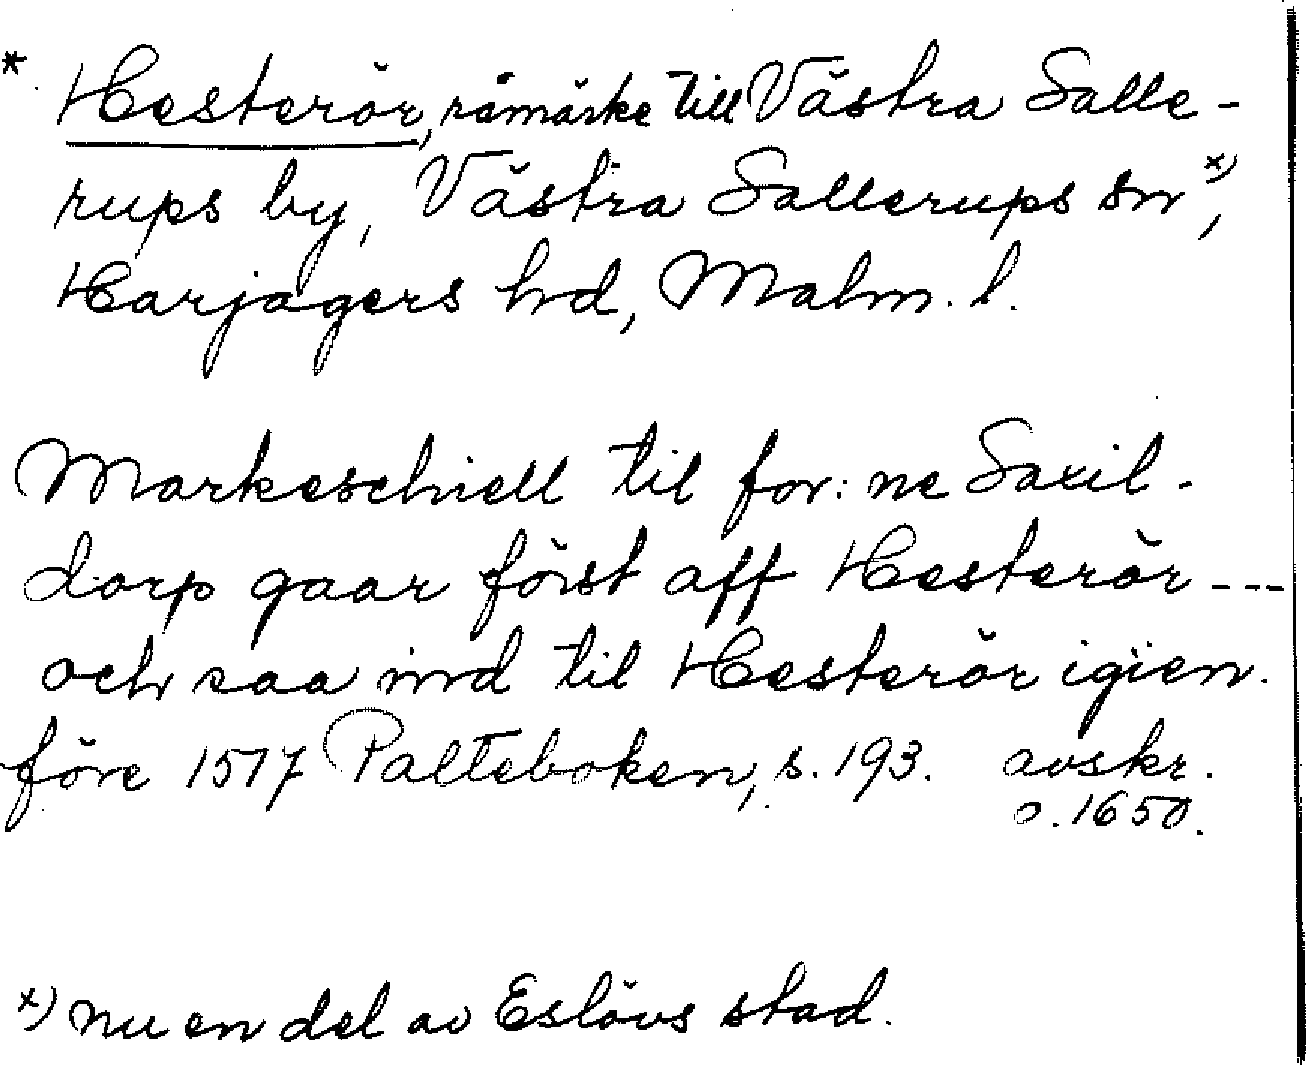 * Hesterör, råmärke till Västra Salle-
rups by, Västra Sallerups sn x),
Harjagers hd, Malm. l.
Markeschiell til for:ne Saxil-
dorp gaar först aff Hesterör ---
och saa ind til Hesterör igien.
före 1517 Palteboken, s. 193. avskr.
o. 1650.
x) nu en del av Eslövs stad.